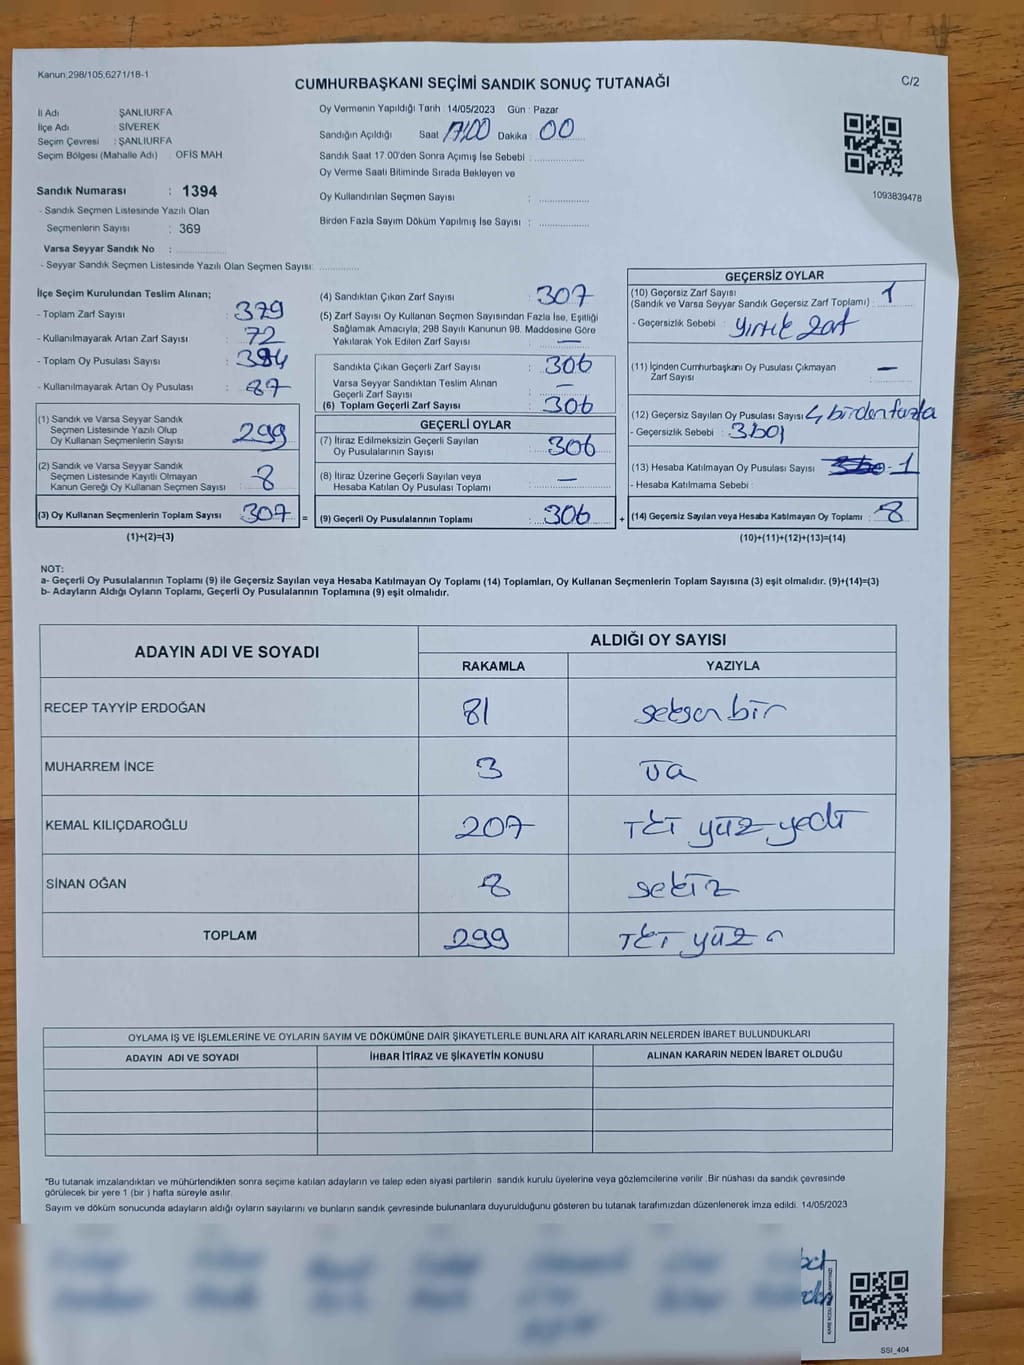 Kanun,298/105,6271/18-1
CUMHURBAŞKANI SEÇİMİ SANDIK SONUÇ TUTANAĞI
C/2
İl Adı : ŞANLIURFA
İlçe Adı : SİVEREK
Seçim Çevresi : ŞANLIURFA
Seçim Bölgesi (Mahalle Adı) : OFİS MAH
Sandık Numarası : 1394
- Sandık Seçmen Listesinde Yazılı Olan
Seçmenlerin Sayısı : 369
Varsa Seyyar Sandık No :
- Seyyar Sandık Seçmen Listesinde Yazılı Olan Seçmen Sayısı:
Oy Vermenin Yapıldığı Tarih : 14/05/2023 Gün : Pazar
Sandığın Açıldığı Saat 17:00 Dakika : 00
Sandık Saat 17 00'den Sonra Açımış İse Sebebi :
Oy Verme Saati Bitiminde Sırada Bekleyen ve
Oy Kullandırılan Seçmen Sayısı :
Birden Fazla Sayım Döküm Yapılmış İse Sayısı :
1093839478
İlçe Seçim Kurulundan Teslim Alınan;
- Toplam Zarf Sayısı : 379
- Kullanılmayarak Artan Zarf Sayısı : 72
- Toplam Oy Pusulası Sayısı : 394
- Kullanılmayarak Artan Oy Pusulası : 87
(1) Sandık ve Varsa Seyyar Sandık
Seçmen Listesinde Yazılı Olup
Oy Kullanan Seçmenlerin Sayısı : 299
(2) Sandık ve Varsa Seyyar Sandık
Seçmen Listesinde Kayıtlı Olmayan
Kanun Gereği Oy Kullanan Seçmen Sayısı : 8
(3) Oy Kullanan Seçmenlerin Toplam Sayısı : 307 =
(1)+(2)=(3)
(4) Sandıktan Çıkan Zarf Sayısı : 307
(5) Zarf Sayısı Oy Kullanan Seçmen Sayısından Fazla İse, Eşitliği
Sağlamak Amacıyla, 298 Sayılı Kanunun 98. Maddesine Göre
Yakılarak Yok Edilen Zarf Sayısı : —
Sandıkta Çıkan Geçerli Zarf Sayısı : 306
Varsa Seyyar Sandıktan Teslim Alınan
Geçerli Zarf Sayısı : —
(6) Toplam Geçerli Zarf Sayısı : 306
GEÇERLİ OYLAR
(7) İtiraz Edilmeksizin Geçerli Sayılan
Oy Pusulalarının Sayısı : 306
(8) İtiraz Üzerine Geçerli Sayılan veya
Hesaba Katılan Oy Pusulası Toplamı : —
(9) Geçerli Oy Pusulalarının Toplamı : 306 +
GEÇERSİZ OYLAR
(10) Geçersiz Zarf Sayısı
(Sandık ve Varsa Seyyar Sandık Geçersiz Zarf Toplamı) : 1
- Geçersizlik Sebebi : yırtık zarf
(11) İçinden Cumhurbaşkanı Oy Pusulası Çıkmayan
Zarf Sayısı : —
(12) Geçersiz Sayılan Oy Pusulası Sayısı : 4 birden fazla
- Geçersizlik Sebebi :
(13) Hesaba Katılmayan Oy Pusulası Sayısı : 1
- Hesaba Katılmama Sebebi :
(14) Geçersiz Sayılan veya Hesaba Katılmayan Oy Toplamı : 8
(10)+(11)+(12)+(13)=(14)
NOT:
a- Geçerli Oy Pusulalarının Toplamı (9) ile Geçersiz Sayılan veya Hesaba Katılmayan Oy Toplamı (14) Toplamları, Oy Kullanan Seçmenlerin Toplam Sayısına (3) eşit olmalıdır. (9)+(14)=(3)
b- Adayların Aldığı Oyların Toplamı, Geçerli Oy Pusulalarının Toplamına (9) eşit olmalıdır.
ADAYIN ADI VE SOYADI
ALDIĞI OY SAYISI
RAKAMLA YAZIYLA
RECEP TAYYİP ERDOĞAN 81 seksen bir
MUHARREM İNCE 3 üç
KEMAL KILIÇDAROĞLU 207 iki yüz yedi
SİNAN OĞAN 8 sekiz
TOPLAM 299 iki yüz
OYLAMA İŞ VE İŞLEMLERİNE VE OYLARIN SAYIM VE DÖKÜMÜNE DAİR ŞİKAYETLERLE BUNLARA AİT KARARLARIN NELERDEN İBARET BULUNDUKLARI
ADAYIN ADI VE SOYADI
İHBAR İTİRAZ VE ŞİKAYETİN KONUSU
ALINAN KARARIN NEDEN İBARET OLDUĞU
"Bu tutanak imzalandıktan ve mühürlendikten sonra seçime katılan adayların ve talep eden siyasi partilerin sandık kurulu üyelerine veya gözlemcilerine verilir .Bir nüshası da sandık çevresinde
görülecek bir yere 1 (bir ) hafta süreyle asılır.
Sayım ve döküm sonucunda adayların aldığı oyların sayılarını ve bunların sandık çevresinde bulunanlara duyurulduğunu gösteren bu tutanak tarafımızdan düzenlenerek imza edildi. 14/05/2023
SSI_404